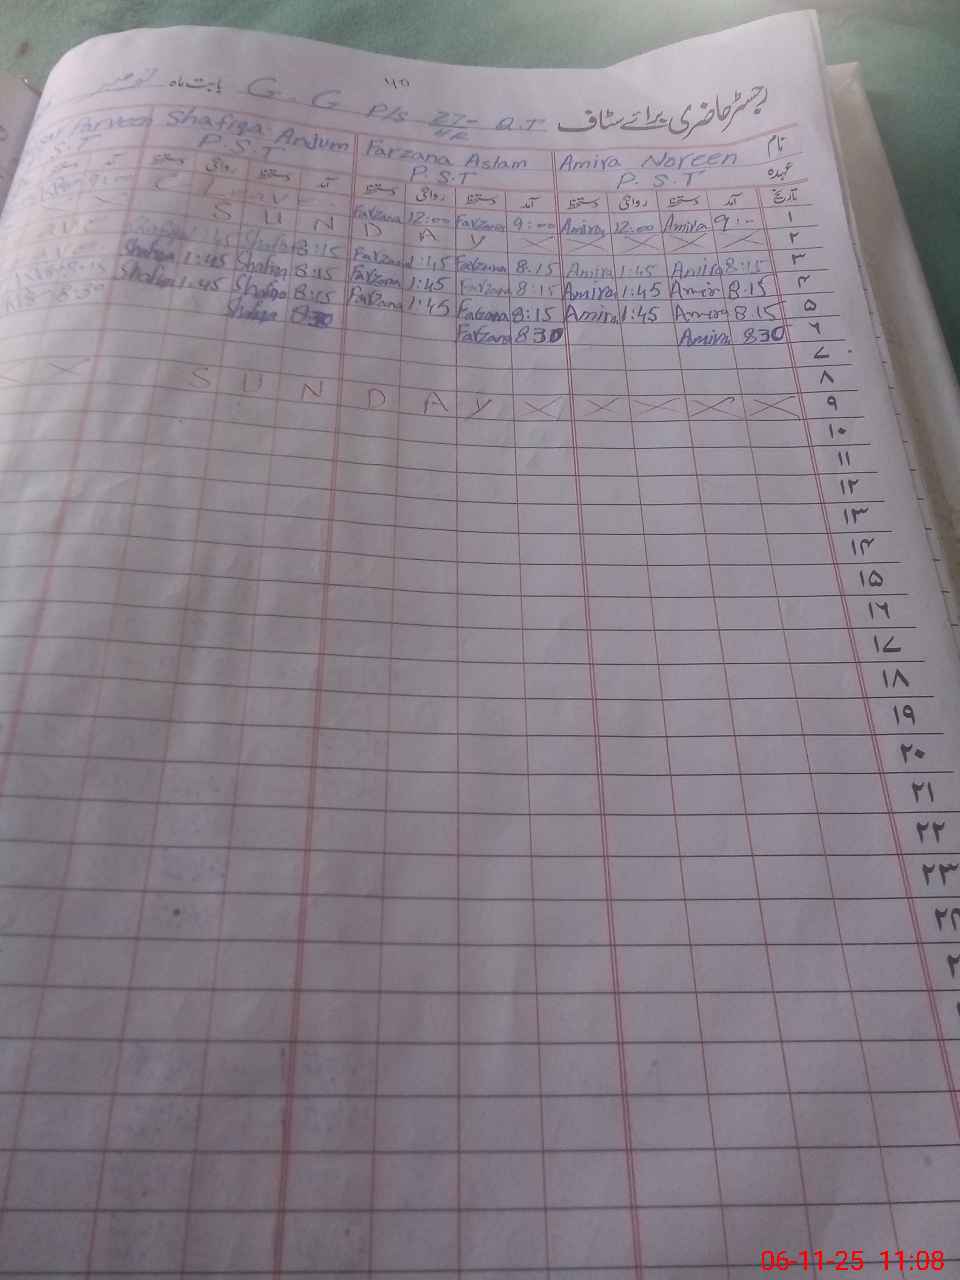 ۷۵
رجسٹر حاضری برائے سٹاف G. G P/s 27- Q.T بابت ماہ نومبر
4R
نام Amira Noreen Farzana Aslam Shafiqa Anjum Parveen
عہدہ P. S. T P. S. T P. S. T S. T
تاریخ آمد دستخط روانگی دستخط آمد دستخط روانگی دستخط آمد دستخط روانگی دستخط آمد
۱ 9:00 Amira 12:00 Amira 9:00 Farzana 12:00 Farzana C Leave
۲ S U N D A Y
۳ 8:15 Amira 1:45 Amira 8:15 Farzana 1:45 Farzana 8:15 Shafiqa 1:45
۴ 8:15 Amira 1:45 Amira 8:15 Farzana 1:45 Farzana 8:15 Shafiqa 1:45 Shafiqa
۵ 8:15 Amira 1:45 Amira 8:15 Farzana 1:45 Farzana 8:15 Shafiqa 1:45 Shafiqa
۶ 830 Amira 830 Farzana 830 Shafiqa
۷
۸
۹ S U N D A Y
۱۰
۱۱
۱۲
۱۳
۱۴
۱۵
۱۶
۱۷
۱۸
۱۹
۲۰
۲۱
۲۲
۲۳
۲۴
06-11-25 11:08